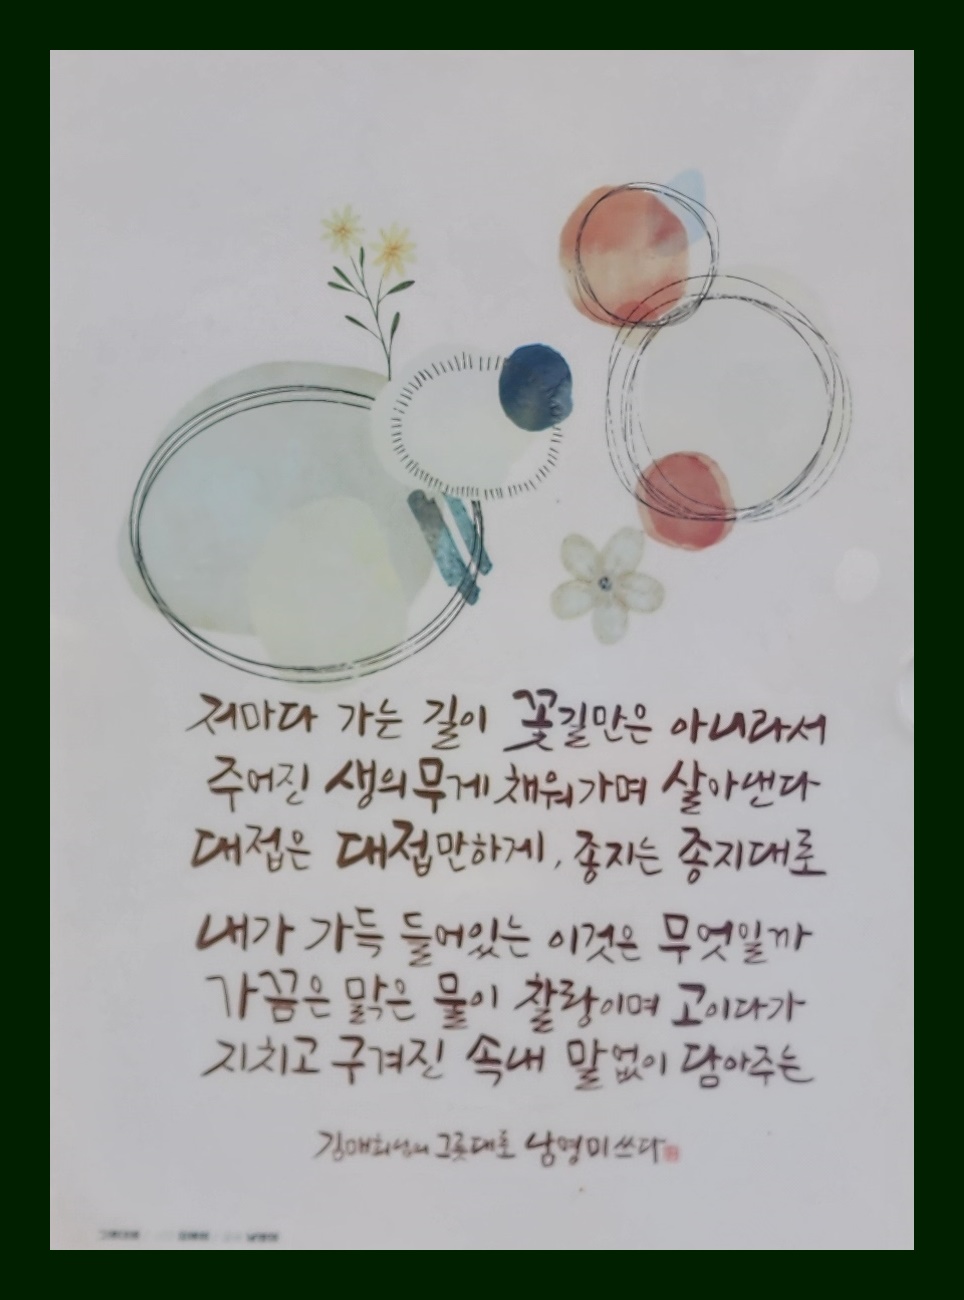 저마다 가는 길이 꽃길만은 아니라서
주어진 생의 무게 채워가며 살아낸다
대접은 대접만하게, 종지는 종지대로
내가 가득 들어있는 이것은 무엇일까
가끔은 맑은 물이 찰랑이며 고이다가
지치고 구겨진 속내 말없이 담아주는
김매희님의 그릇대로 남영미 쓰다